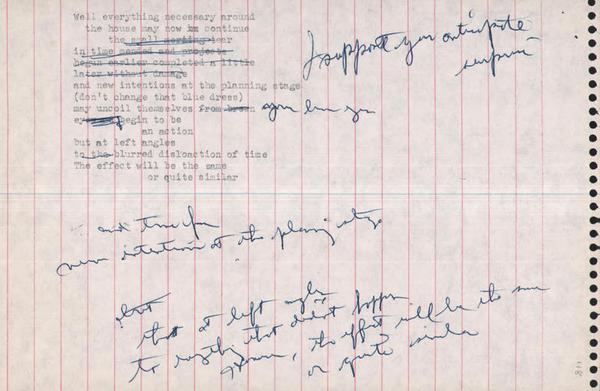 Well everything necessary around
the house may now continue
the small
in time
begun earlier completed a little
later without damage
and new intentions at the planning stage
(don't change that blue dress)
may uncoil themselves from
begin to be
an action
but at left angles
to the blurred dislocation of time
The effect will be the same
or quite similar
I support you anticipate
you
and time for
new intentions at the planning stage
but
that at left angles
to anything that didn't happen
the effect will be the same
or quite similar